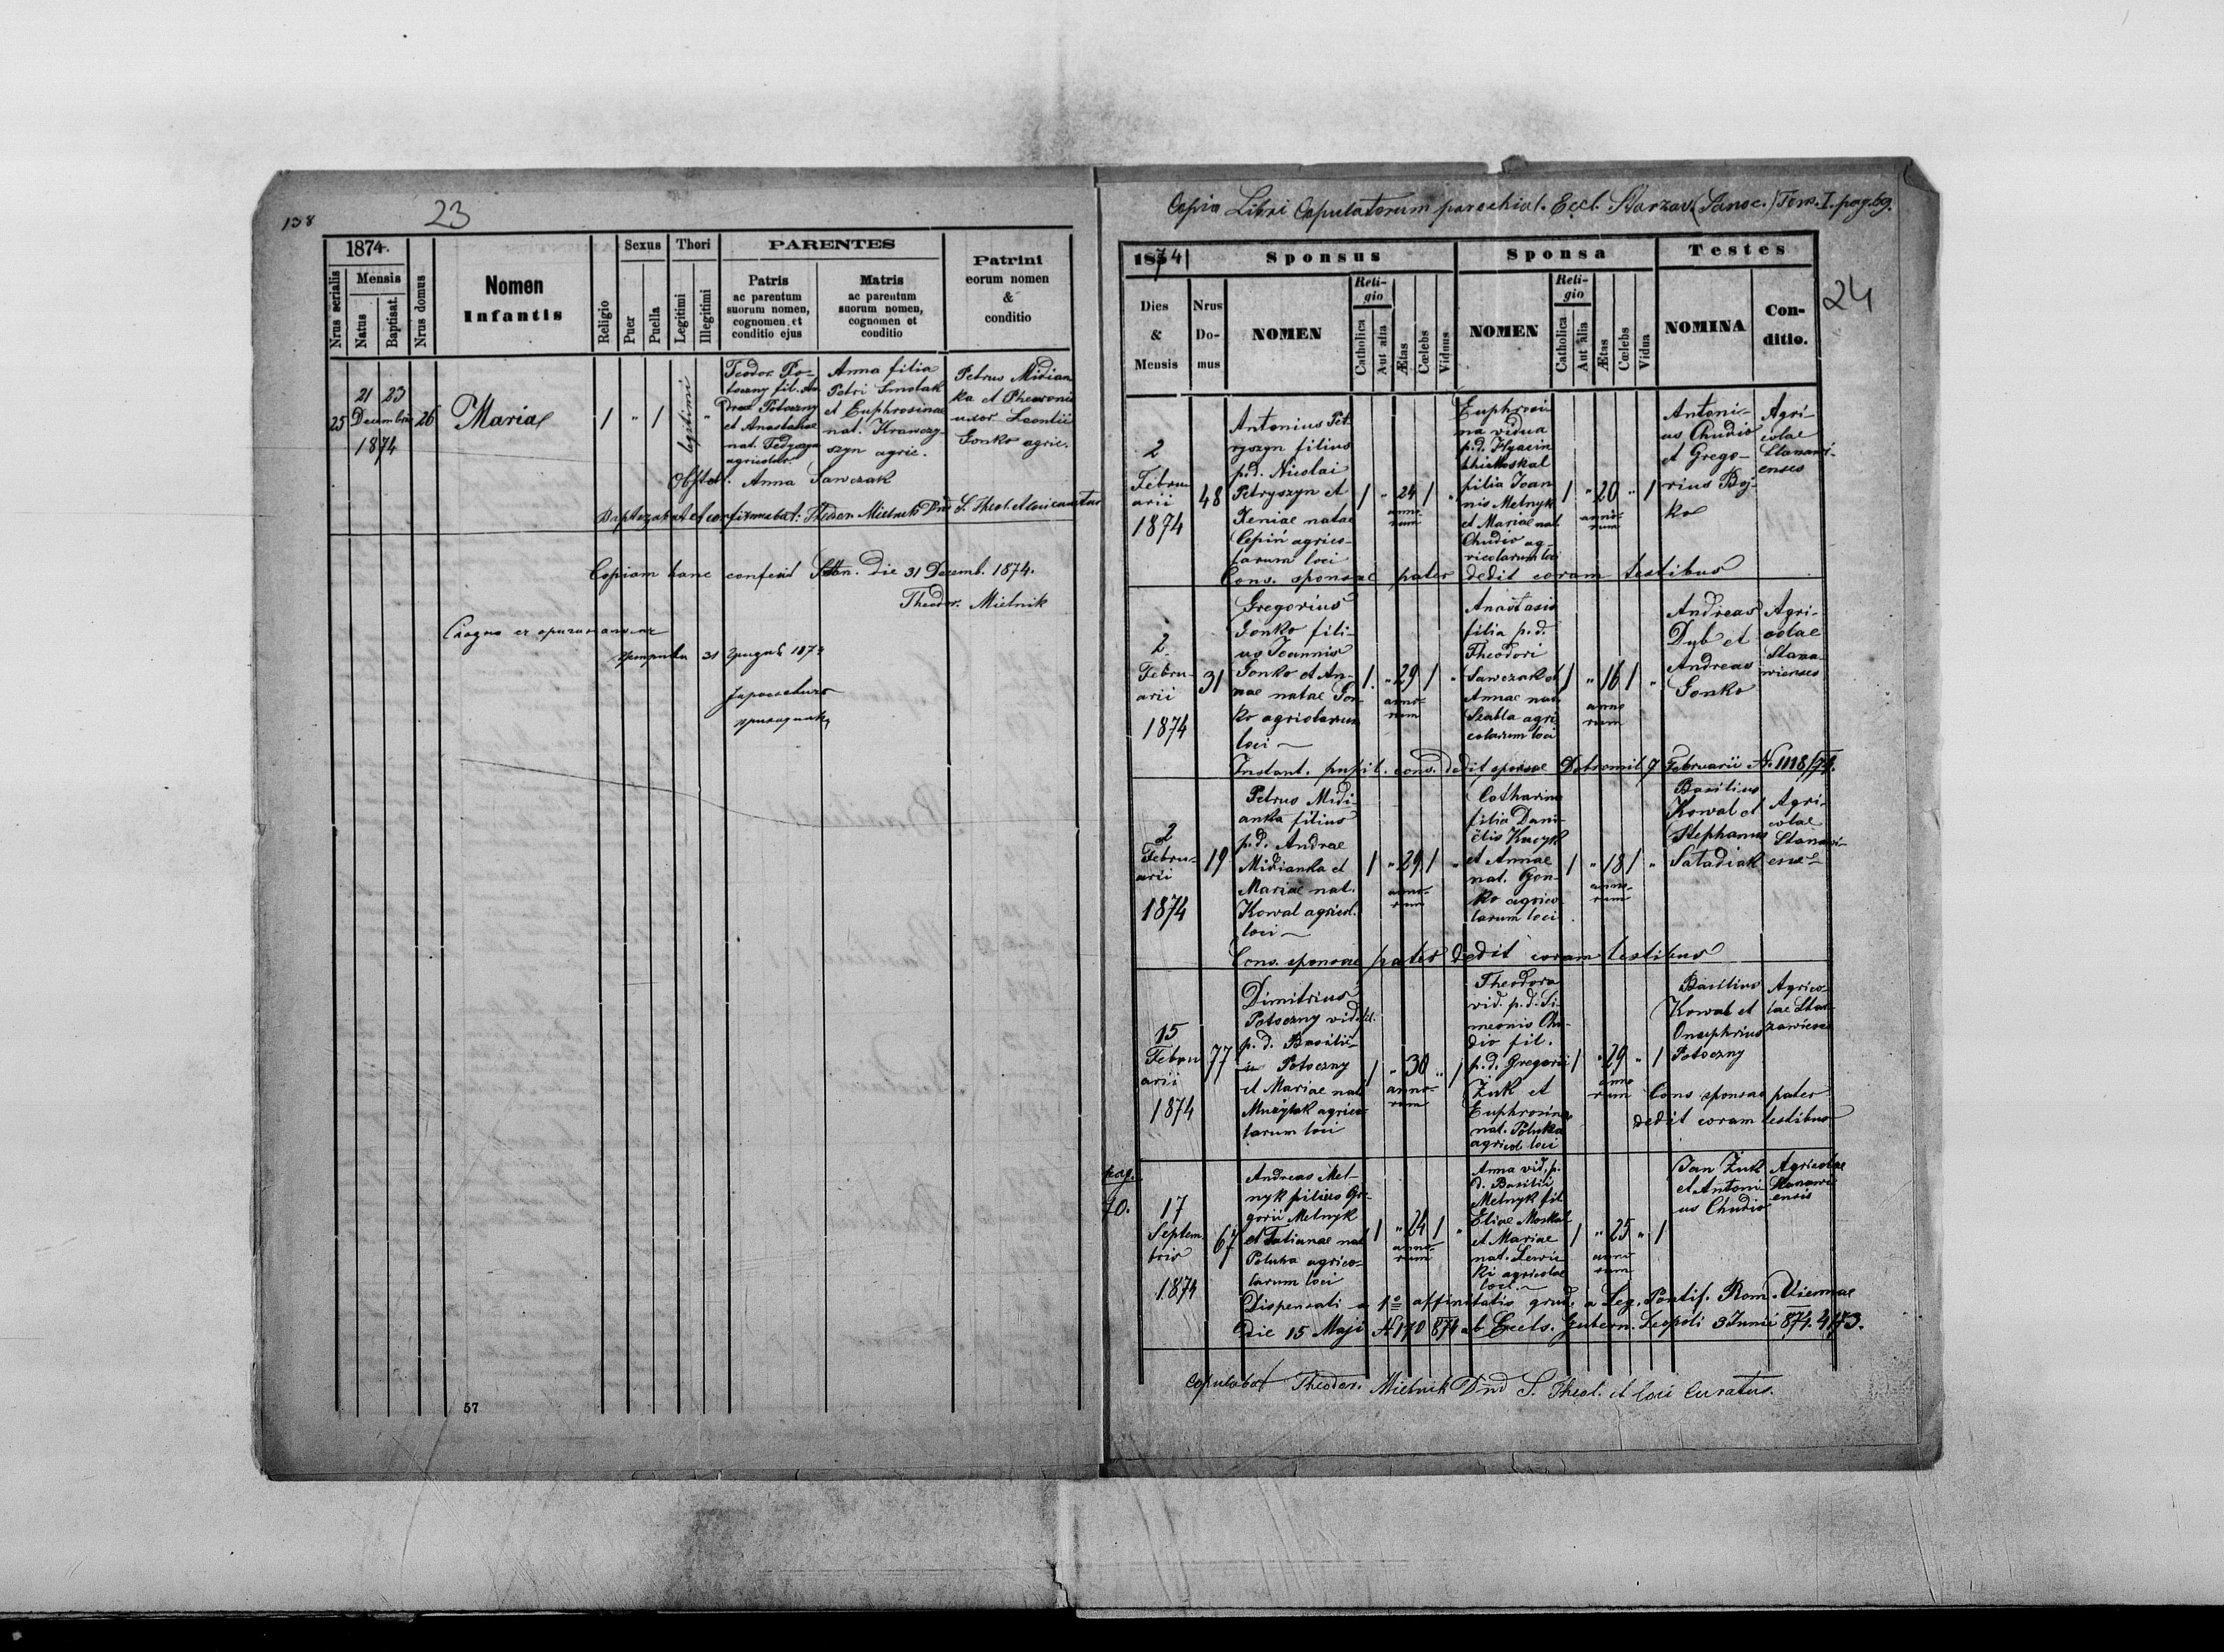 138
23
1874.
Nrus serialis
Mensis
Natus
Baptisat.
Nrus domus
Nomen
Infantis
Religio
Sexus
Puer
Puella
Thori
Legitimi
Illegitimi
PARENTES
Patris
ac parentum
suorum nomen,
cognomen et
conditio ejus
Matris
ac parentum
suorum nomen,
cognomen et
conditio
Patrini
eorum nomen
&
conditio
25
21 23
Decembris
1874
26
Maria
1 " 1
legitimi
"
Teodor Po-
toczny fil. An
dreae Potoczny
et Anastasiae
nat. Fedyszyn
agricolar.
Anna filia
Petri Smolak
et Euphrosinae
nat. Krawczy-
szyn agric.
Petrus Midian
ka et Phewronia
uxor Leontii
Gonko agric.
Obstet. Anna Sawczak
Baptizabat et confirmabat: Theodor. Mielnik Dnd S. Theol. et loci curatus
Copiam hanc confecit Die 31 Decemb. 1874.
Theodor. Mielnik
31
57
Copia Libri Copulatorum parochial. Eccl. Starzav. (Sanoc.) Tom. I. pag. 69.
24
1874
Sponsus
Sponsa
Testes
Dies
&
Mensis
Nrus
Do-
mus
NOMEN
Reli-
gio
Catholica
Aut alia
Ætas
Cœlebs
Viduus
NOMEN
Reli-
gio
Catholica
Aut alia
Ætas
Cœlebs
Vidua
NOMINA
Con-
ditio.
2
Febru-
arii
1874
48
Antonius Pet
ryszyn filius
p.d. Nicolai
Petryszyn et
Xeniae natae
Cepiń agrico-
larum loci
1 " 24 1 "
anno-
rum
Euphrosi
na vidua
p.d. Hyacin
thi Moskal
filia Joan
nis Melnyk
et Mariae nat.
Chudio ag-
ricolarum loci
1 " 20 " 1
anno-
rum
Antoni-
us Chudio
et Grego-
rius Boj-
ko
Agri-
colae
Starzawi-
enses
Cons. sponsae pater dedit coram testibus
2
Febru-
arii
1874
31
Gregorius
Gonko fili-
us Joannis
Gonko et An-
nae natae Gon-
ko agricolarum
loci
1. " 29 1 "
anno-
rum
Anastasia
filia p.d.
Theodori
Sawczak et
Annae nat.
Szabla agri
colarum loci
1 " 16 1 "
anno
rum
Andreas
Dub et
Andreas
Gonko
Agri-
colae
Starza-
wienses
Instant. pupil. cons. dedit sponsae Dobromil 7 Februarii N. 1118/74.
2
Febru-
arii
1874
19
Petrus Midi-
anka filius
p.d. Andreae
Midianka et
Mariae nat.
Kowal agricol.
loci
1 " 29 1 "
anno-
rum
Catharina
filia Dani-
ëlis Kuczyk
et Annae
nat. Gon-
ko agrico
larum loci
1 " 18 1 "
anno-
rum
Basilius
Kowal et
Stephanus
Satadiak
Agri-
colae
Cons. sponsae pater dedit coram testibus
15
Febru
arii
1874
77
Dimitrius
Potoczny vid. fil.
p. d. Basilii
Potoczny
et Mariae nat.
Mużytak agrico-
larum loci
1 " 30 " 1
anno-
rum
Theodora
vid. p.d. Si-
meonis Chu-
dio fil.
p.d. Gregorii
Żuk et
Euphrosinae
nat. Poluka
agricol. loci
1 " 29 " 1
anno
rum
Basilius
Kowal et
Onuphrius
Potoczny
Agrico-
lae Star-
zawiens
Cons sponsae pater
dedit coram testibus
pag.
70.
17
Septem
bris
1874
67
Andreas Mel-
nyk filius Gre-
gorii Melnyk
et Tatianae nat
Poluka agrico-
larum loci
1 " 24 1 "
anno-
rum
Anna vid. p.
d. Basilii
Melnyk fil
Eliae Moskal
et Mariae
nat. Lewic
ki agricolae
loci.
1 " 25 " 1
anno
rum
Jan Żuk
et Antoni
us Chudio
Agricolae
Starzawi
ensis
Dispensati a 1o affinitatis grad. a Leg. Pontif. Rom. Viennae
die 15 Maji N 170 874 ab Excels. Gubern. Leopoli 3 Junii 874. 4173.
Copulabat Theodor. Mielnik Dnd S. Theol. et loci Curatus.